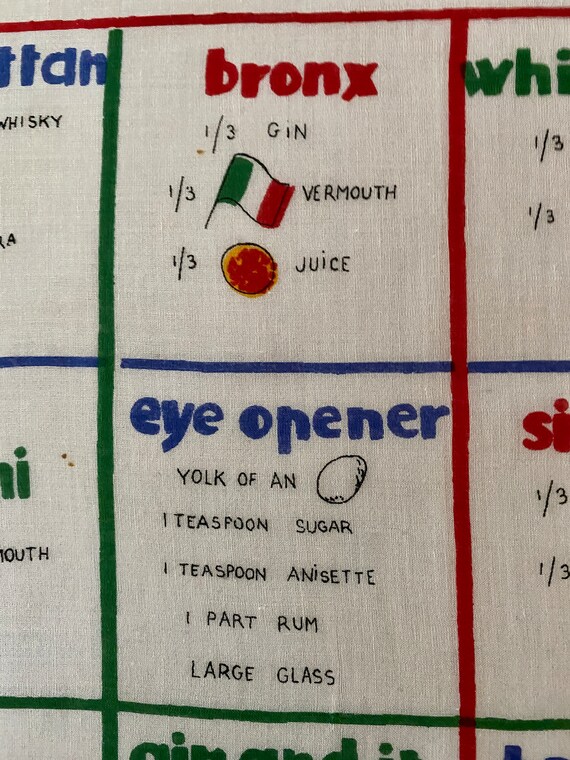 bronx
1/3 GIN
1/3 VERMOUTH
1/3 JUICE
WHISKY
eye opener
YOLK OF AN
1 TEASPOON SUGAR
1 TEASPOON ANISETTE
1 PART RUM
LARGE GLASS
1/3
1/3
1/3
1/3
gin and it